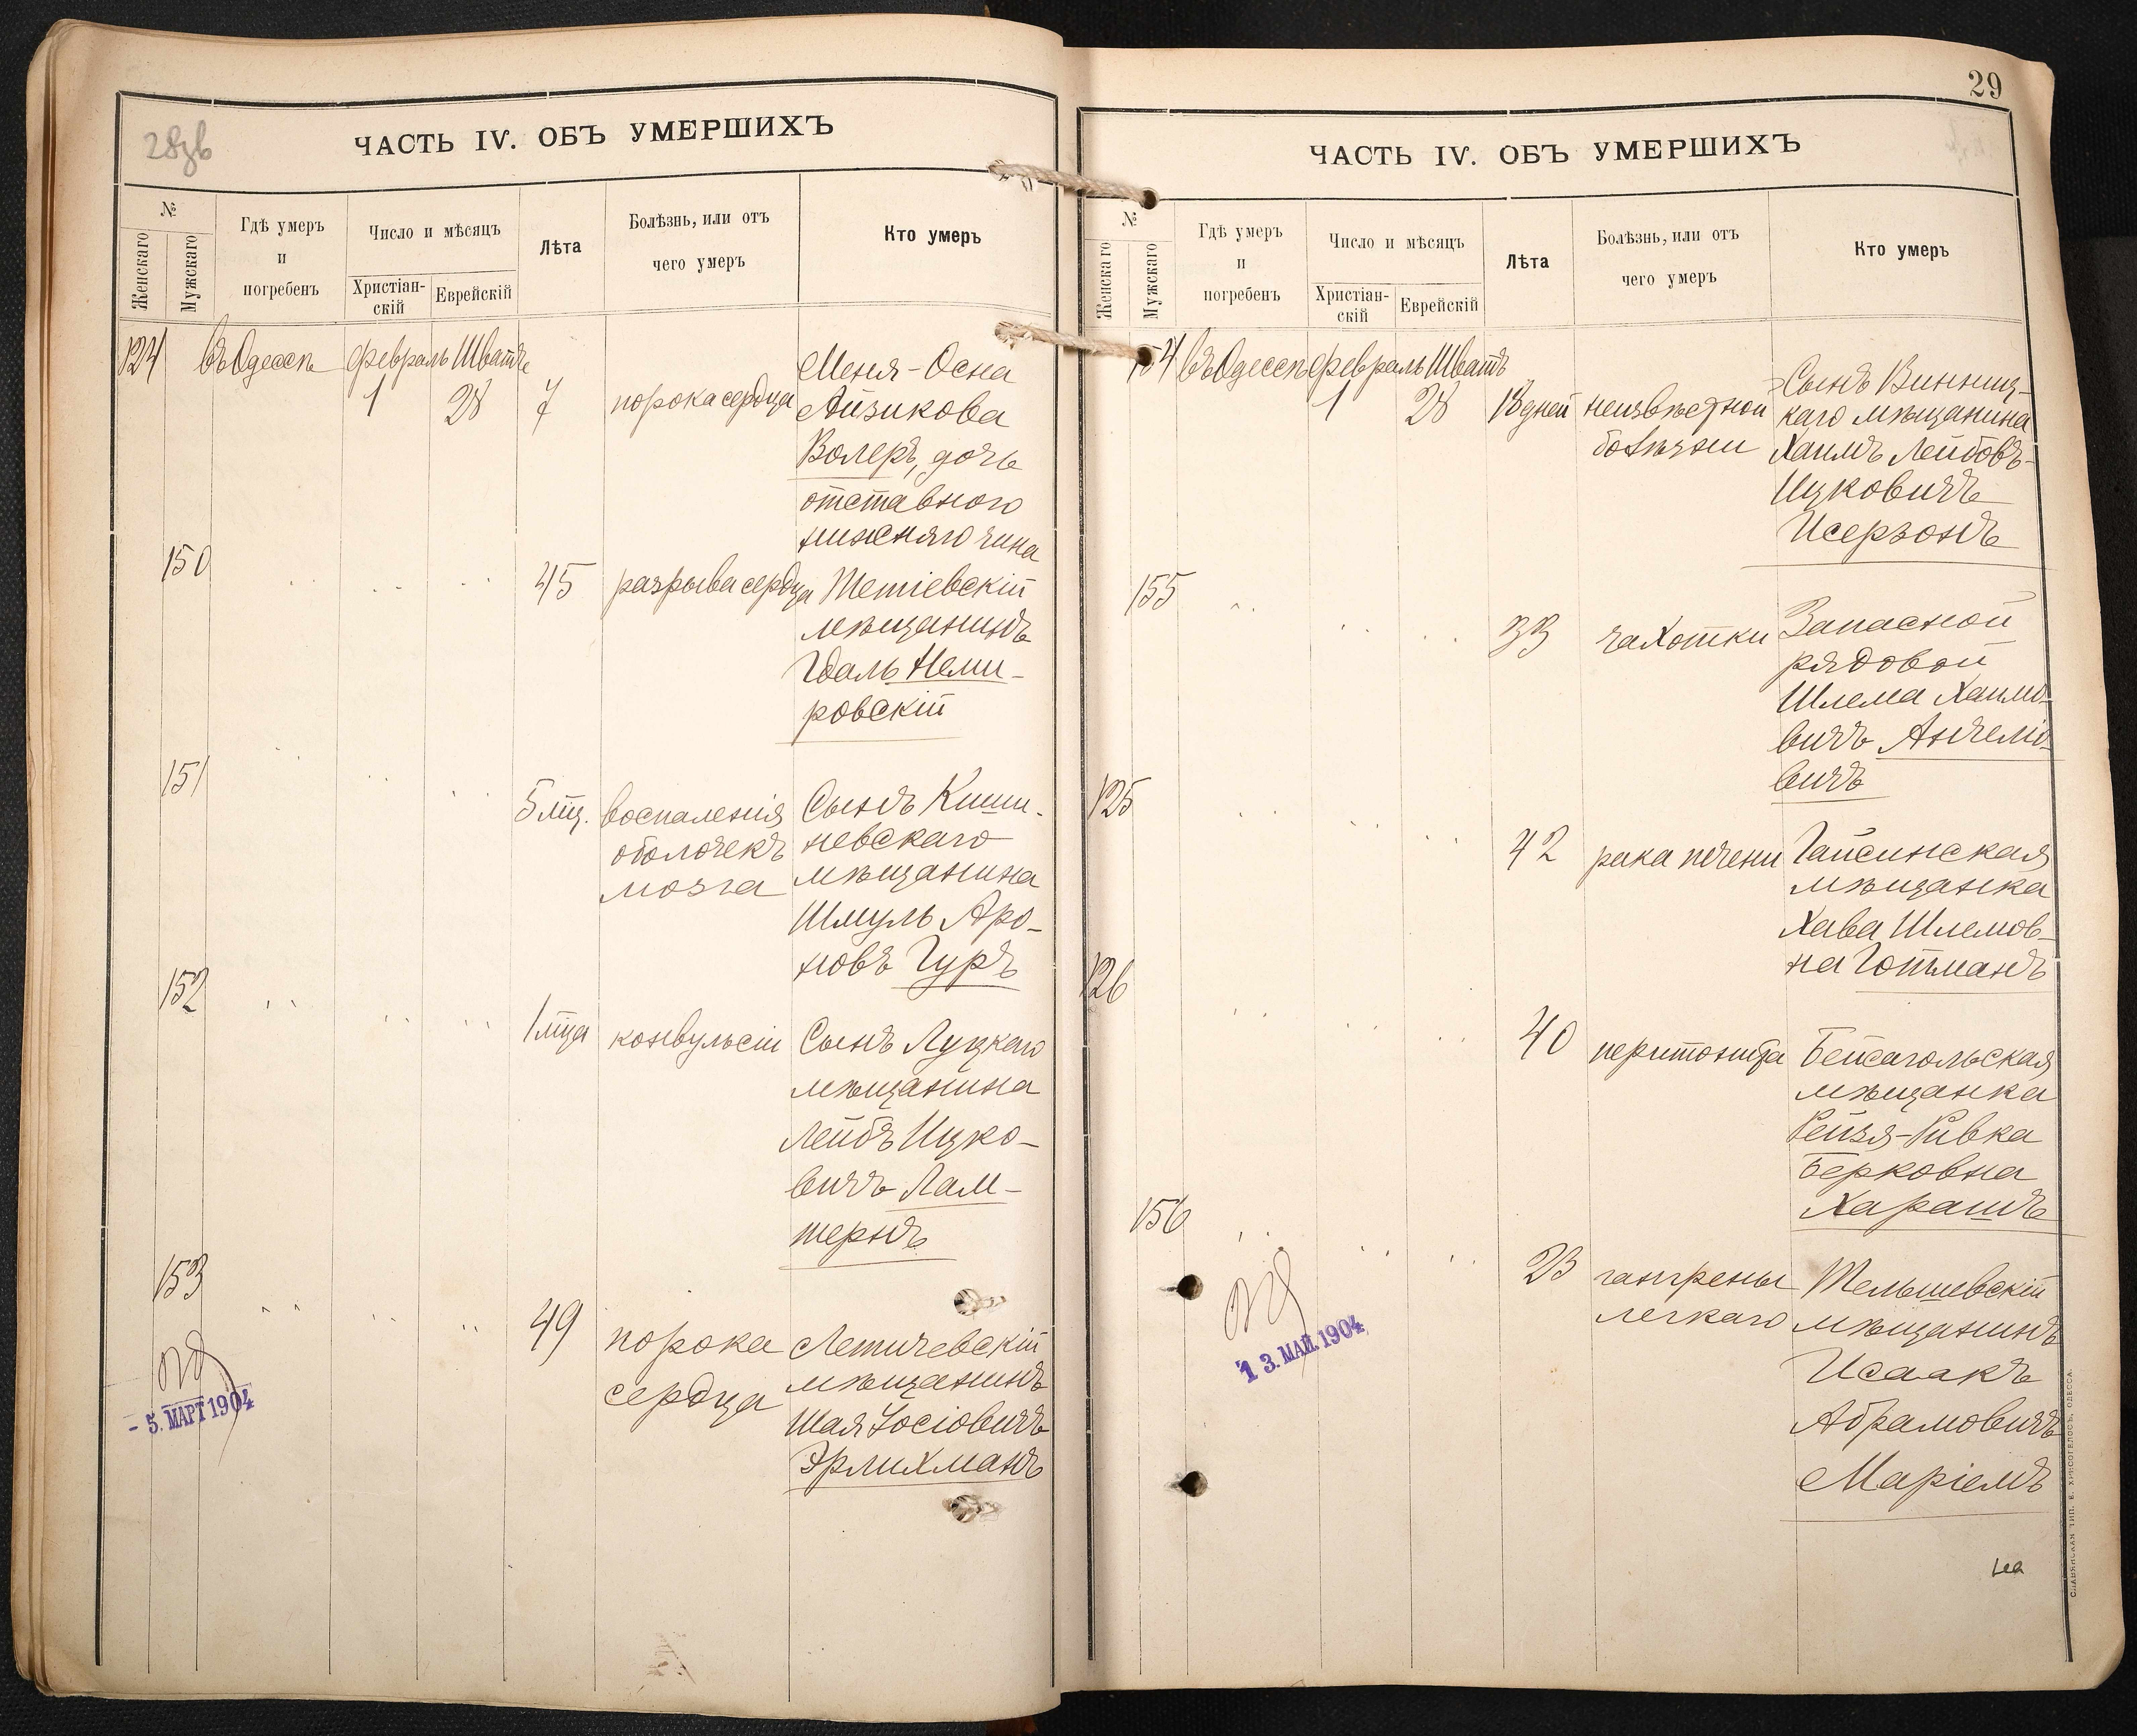 28 об
ЧАСТЬ IV. ОБЪ УМЕРШИХЪ
№
Женскаго
Мужскаго
Гдѣ умеръ
и
погребенъ
Число и мѣсяцъ
Христіан-
скій
Еврейскій
Лѣта
Болѣзнь, или отъ
чего умеръ
Кто умеръ
124 въ Одессѣ февраль Шватъ
1 28 7 порока сердца
Меня-Осна
Айзикова
Волеръ, дочь
отставного
нижняго чина
150 45 разрыва сердца Тетіевскій
мѣщанинъ
Гдаль Неми-
ровскій
151 5 мц. воспаленія Сынъ Киши-
оболочекъ невскаго
мозга мѣщанина
Шмуль Аро-
новъ Гуръ
152 1 мца конвульсіи Сынъ Луцкаго
мѣщанина
Лейбъ Ицко-
вичъ Лам-
тернъ
153 49 порока Летичевскій
сердца мѣщанинъ
Шая Іосіовичъ
Эрлихманъ
- 5. МАРТ 1904
29
ЧАСТЬ IV. ОБЪ УМЕРШИХЪ
№
Женскаго
Мужскаго
Гдѣ умеръ
и
погребенъ
Число и мѣсяцъ
Христіан-
скій
Еврейскій
Лѣта
Болѣзнь, или отъ
чего умеръ
Кто умеръ
154 въ Одессѣ февраль Шватъ
1 28 18 дней неизвѣстной Сынъ Винниц-
болѣзни каго мѣщанина
Хаимъ Лейбовъ-
Ицковичъ
Исерзонъ
155 33 чахотки Запасной
рядовой
Шлема Хаимо-
вичъ Анчело-
вичъ
125 42 рака печени Гайсинская
мѣщанка
Хава Шлемов-
на Гойманъ
126 40 перитонита Бейсагольская
мѣщанка
Рейзя-Ривка
Берковна
Харашъ
156 23 гангрены Тельшевскій
легкаго мѣщанинъ
Исаакъ
Абрамовичъ
Маріемъ
1 3. МАЙ. 1904
СЛАВЯНСКАЯ ТИП. Е. ХРИСОГЕЛОСЪ, ОДЕССА.